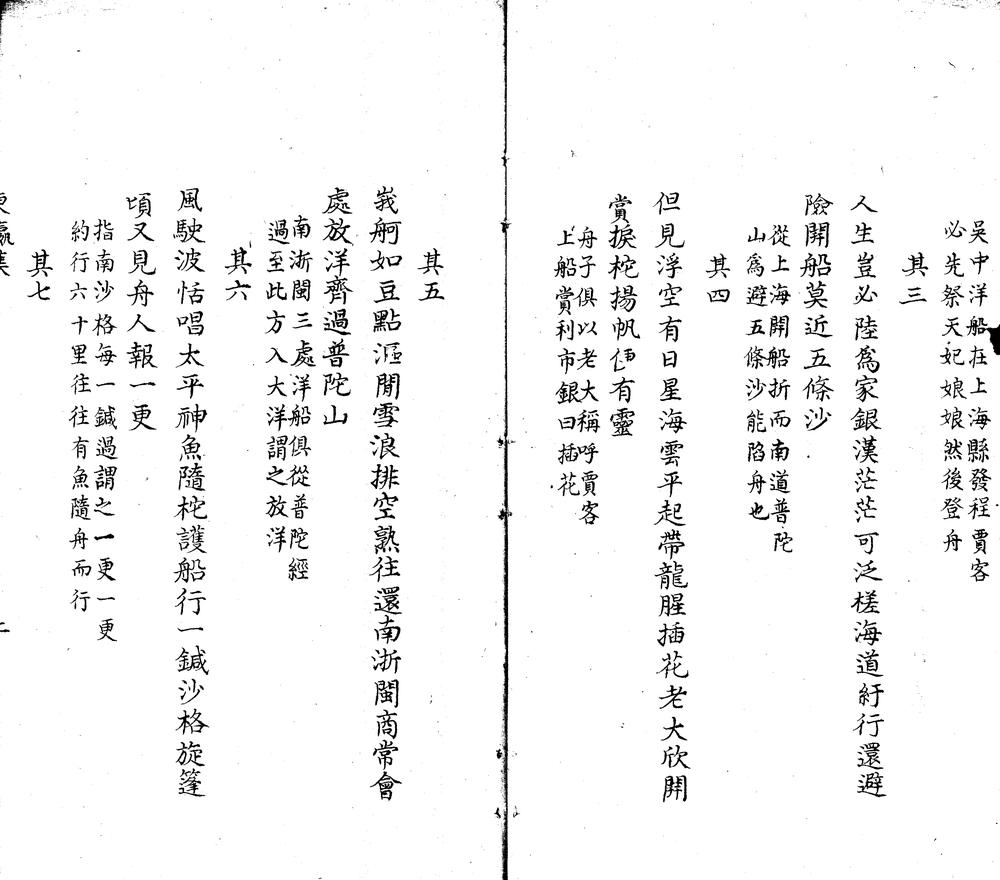 吳中洋船在上海縣發程賈客
必先祭天妃娘娘然後登舟
其三
人生豈必陸爲家銀漢茫茫可泛槎海道紆行還避
險開船莫近五條沙
從上海開船折而南道普陀
山爲避五條沙能陷舟也
其四
但見浮空有日星海雲平起帶龍腥插花老大欣開
賞捩柁揚帆有靈
舟子俱以老大稱呼賈客
上船賞利市銀曰插花
其五
峩舸如豆點漚間雪浪排空熟往還南浙閩商常會
處放洋齊過普陀山
南浙閩三處洋船俱從普陀經
過至此方入大洋謂之放洋
其六
風駛波恬唱太平神魚隨柁護船行一鍼沙格旋篷
頃又見舟人報一更
指南沙格每一鍼過謂之一更一更
約行六十里往往有魚隨舟而行
其七